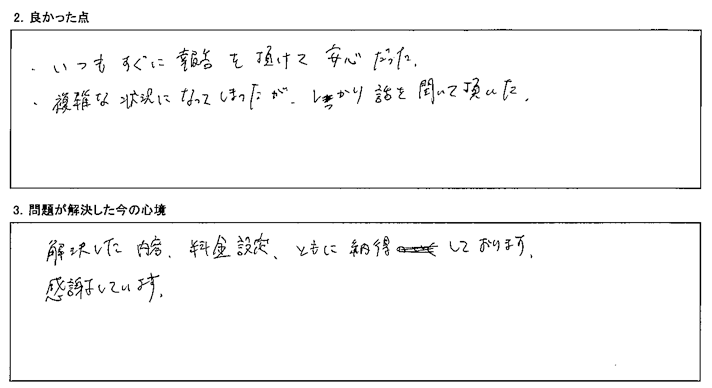 2. 良かった点
・いつもすぐに報告を頂けて安心だった。
・複雑な状況になってしまったが、しっかり話を聞いて頂いた。
3. 問題が解決した今の心境
解決した内容、料金設定、ともに納得しております。
感謝しています。